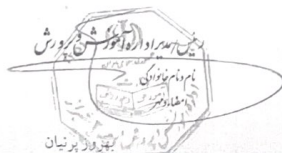 رئیس/مدیر اداره آموزش و پرورش
نام و نام خانوادگی
امضاء و مهر
بهروز پرنیان